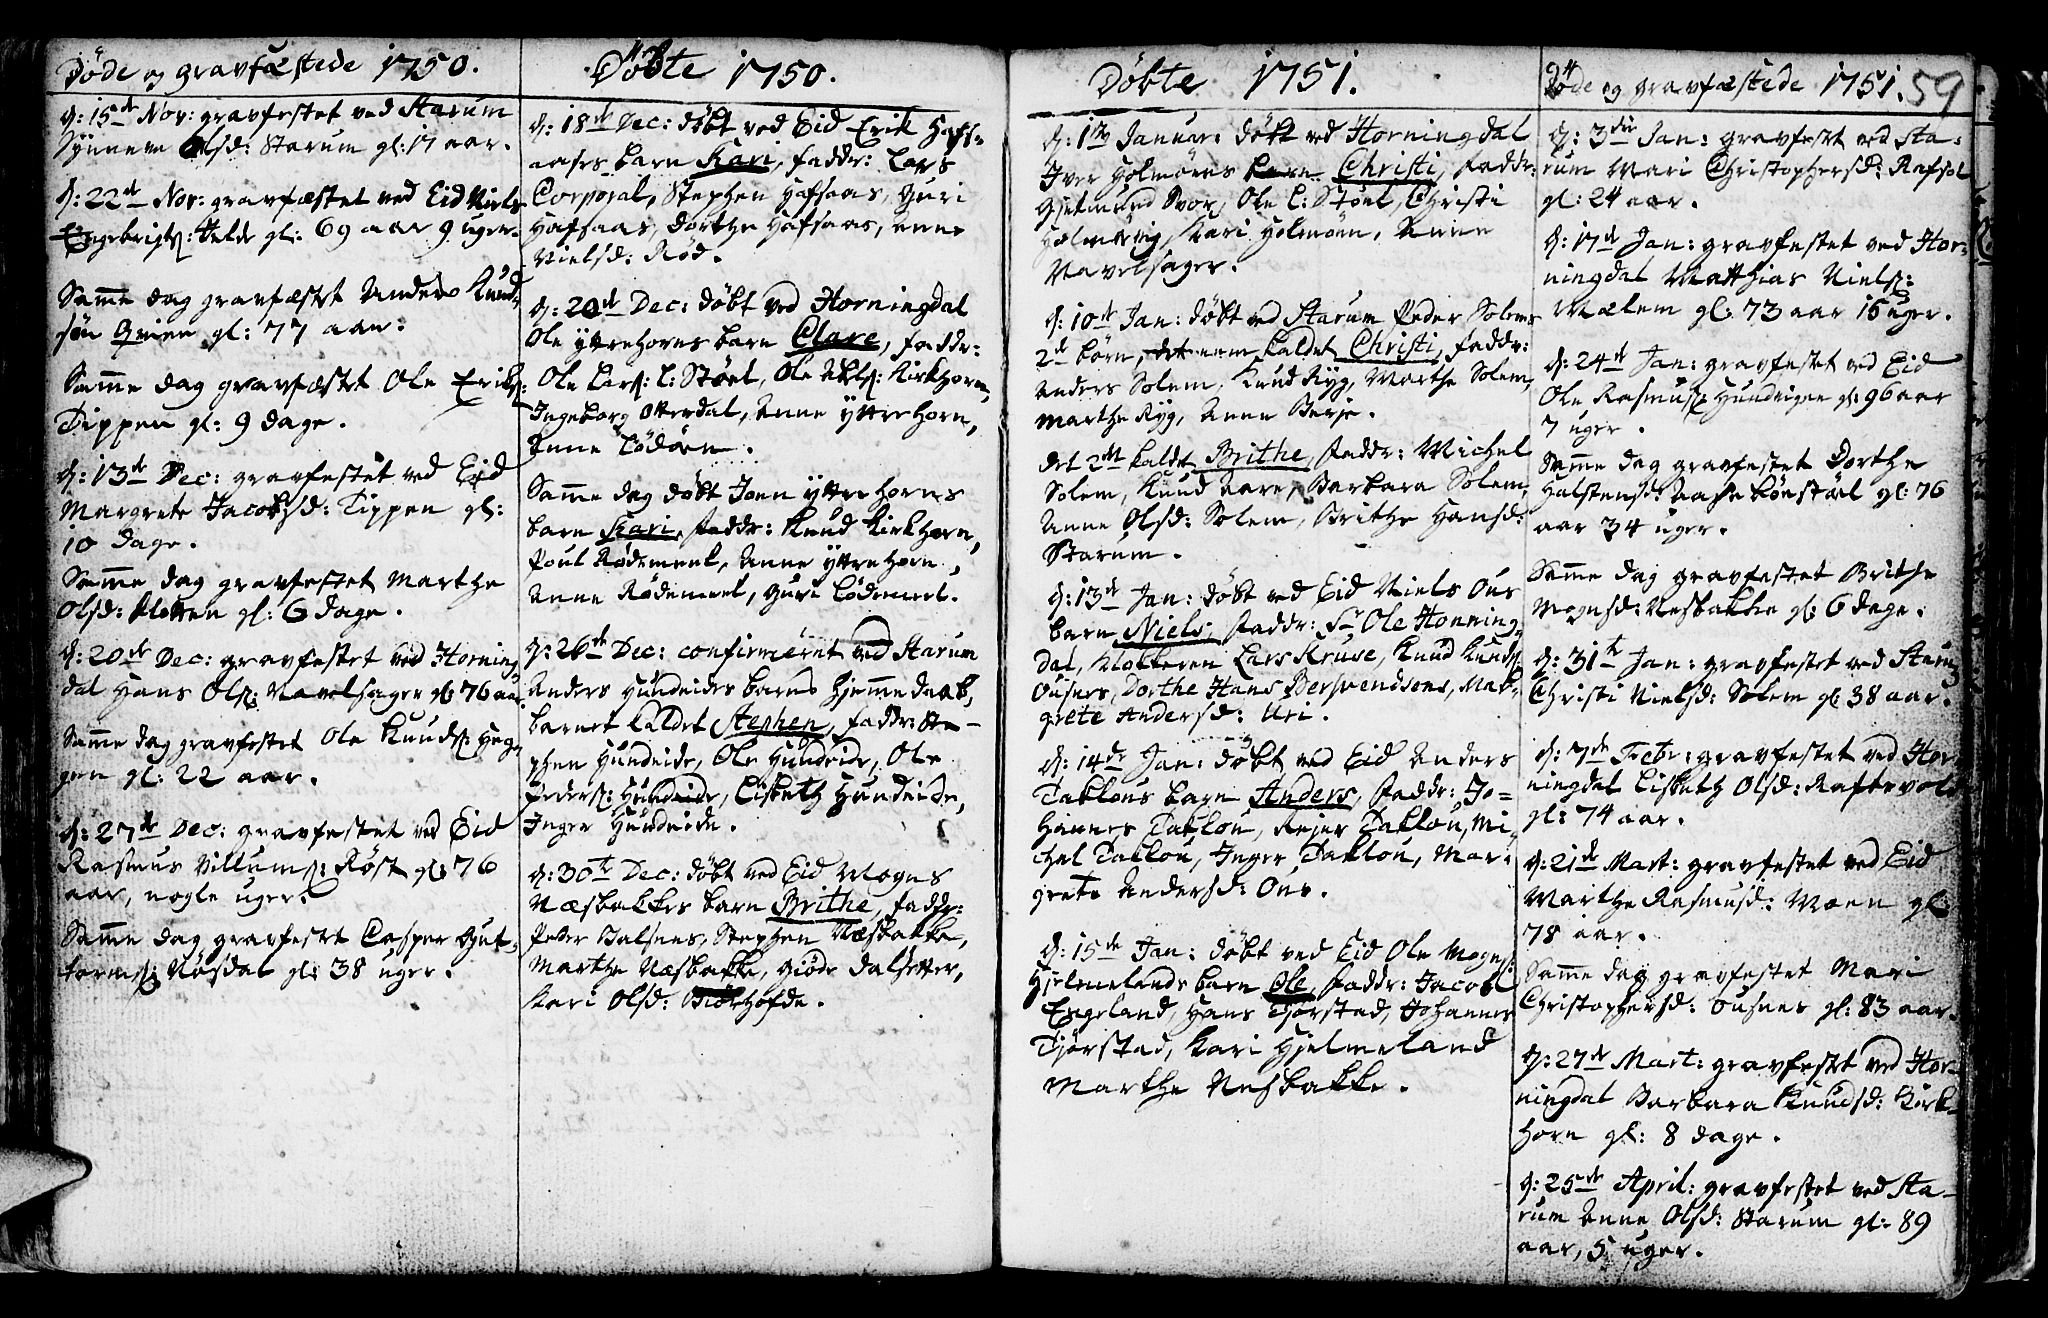 Døde og gravfæstede 1750.
d: 15de Nov: gravfestet ved Starum
Synneve Olsd: Starum gl: 17 aar.
d: 22de Nov: gravfæstet ved Eid Niels
Engebrigts: Helde gl: 69 aar 9 uger.
Samme dag gravfæstet Anders Knud-
søn Grien gl: 77 aar.
Samme dag gravfæstet Ole Eriks:
Tippen gl: 9 dage.
d: 13de Dec: gravfestet ved Eid
Margrete Jacobsd: Tippen gl:
10 dage.
Samme dag gravfestet Marthe
Olsd: Kløtten gl: 6 dage.
d: 20de Dec: gravfestet ved Horning-
dal Hans Ols: Navelsager gl: 76 aar
Samme dag gravfestet Ole Knuds: Heg-
gen gl: 22 aar.
d: 27de Dec: gravfestet ved Eid
Rasmus Villums: Røst gl: 76
aar, nogle uger.
Samme dag gravfestet Casper Gut-
torms: Nøsdal gl: 38 uger.
Døbte 1750.
d: 18de Dec: døbt ved Eid Erik Hafs-
aases barn Kari, faddr: Lars
Corporal, Stephen Hafsaas, Guri
Hafsaas, Dorthe Hafsaas, Anne
Nielsd: Rød.
d: 20de Dec: døbt ved Horningdal
Ole Yttrehorns barn Clare, faddr:
Ole Lars: L: Støel, Ole Nils: Kirkhorn,
Ingeborg Otterdal, Anne Yttrehorn,
Anne Lødøen.
Samme dag døbt Joen Yttrehorns
barn Kari, faddr: Knud Kirkhorn,
Poul Rødemeel, Anne Yttrehorn,
Anne Rødemeel, Guri Lødemeel.
d: 26de Dec: confirmeret ved Starum
Anders Hundeides barns hjemmedaab,
barnet kaldet Stephen, faddr: Ste-
phen Hundeide, Ole Hundeide, Ole
Peders: Hundeide, Lisbeth Hundeide,
Inger Hundeide.
d: 30te Dec: døbt ved Eid Mogns
Næsbakkes barn Brithe, faddr:
Peder Balsnes, Stephen Næsbakke,
Marthe Næsbakke, Giøde Dalsetter,
Kari Olsd: Hofde.
Døbte 1751.
d: 1te Januar: døbt ved Horningdal
Iver Holmøens barn Christi, faddr:
Gjelmund Svor, Ole L: Støel, Christi
Holmøen, Kari Holmøen, Anne
Navelsager.
d: 10de Jan: døbt ved Starum Peder Solems
2de børn, det eene kaldet Christi, faddr:
Anders Solem, Knud Ryg, Marthe Solem,
Marthe Ryg, Anne Berje.
det 2det kaldet Brithe, faddr: Michel
Solem, Knud Aare, Barbara Solem,
Anne Olsd: Solem, Brithe Hansd:
Starum.
d: 13de Jan: døbt ved Eid Niels Øus
barn Niels, faddr: Sr Ole Honning-
dal, Klokkeren Lars Kruse, Knud Knuds:
Øusnes, Dorthe Hans Bersvendsons, Mar-
grete Andersd: Uri.
d: 14de Jan: døbt ved Eid Anders
Taklous barn Anders, faddr: Jo-
hannes Taklou, Rejer Taklou, Mi-
chel Taklou, Inger Taklou, Mar-
grete Andersd: Øur.
d: 15de Jan: døbt ved Eid Ole Mogns:
Hjelmelands barn Ole, faddr: Jacob
Engeland, Hans Tjørstad, Johannes
Tjørstad, Kari Hjelmeland
Marthe Nesbakke.
Døde og gravfæstede 1751. 59
d: 3die Jan: gravfestet ved Sta-
rum Mari Christophersd: Rafsol
gl: 24 aar.
d: 17de Jan: gravfestet ved Hor-
ningdal Matthias Niels:
Mælem gl: 73 aar 16 uger.
d: 24de Jan: gravfestet ved Eid
Ole Rasmus: Hundeigen gl: 96 aar
7 uger.
Samme dag gravfestet Dorthe
Halstensd: Aasebønstøel gl: 76
aar 34 uger.
Samme dag gravfestet Brithe
Mognsd: Nesbakke gl: 6 dage.
d: 31te Jan: gravfestet ved Starum
Christi Nielsd: Solem gl: 38 aar.
d: 7de Febr: gravfestet ved Hor-
ningdal Lisbeth Olsd: Raftevold
gl: 74 aar.
d: 21de Mart: gravfestet ved Eid
Marthe Rasmusd: Moen gl:
78 aar.
Samme dag gravfestet Mari
Christophersd: Øusnes gl: 83 aar.
d: 27de Mart: gravfestet ved Hor-
ningdal Barbara Knudsd: Kirk-
horn gl: 8 dage.
d: 25de April: gravfestet ved Sta-
rum Anne Olsd: Starum gl: 89
aar, 5 uger.